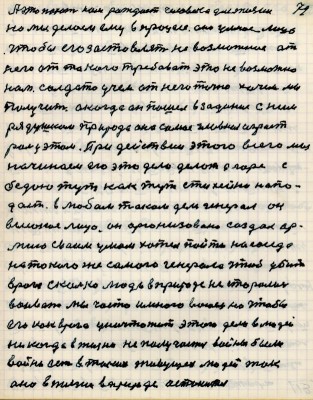 71
А кто такой нам рождает человека для жизни
но мы делаем ему в процес. оно умное лицо
чтобы его заставлять не возможное от
него от такого требовать это не возможно
нам. солдато учем от него точно хочем мы
получить. а когда он пошел в задчик с ним
рядушком природа она самое главный играет
роль этом. При действии этого всего мы
начинаем его это дело делать а горе с
бедою тут как тут стихейно напо-
дает. в любом таком деле генерал он
военное лицо. он организовано создал ар-
мию своим умом хотел пойти на соседа
на такого же самого генерала чтоб убить
врага сколко людей в природе не
воевать мы часто много воюем но чтобы
его как врага уничтожит этого дела в людей
никогда в жизни не получится войны были
война есть в таких живущих людей так
она в жизни в природе останится